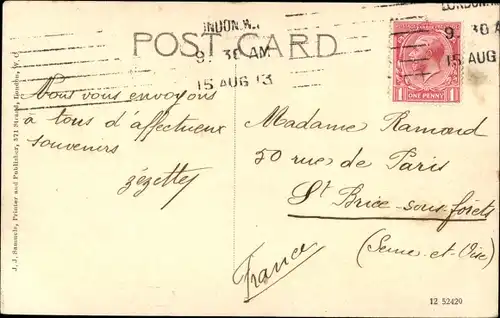 LONDON.W.1
9. 30 AM
15 AUG 13
POST CARD
LONDON.W.
9. 30 A
15 AUG
ONE PENNY
1 1
Nous vous envoyons
à tous d'affectueux
souvenirs
Zézette
Madame Ramond
50 rue de Paris
St Brice-sous-forêts
(Seine-et-Oise)
France
J. J. Samuels, Printer and Publisher, 371 Strand, London, W.C.
12 52420